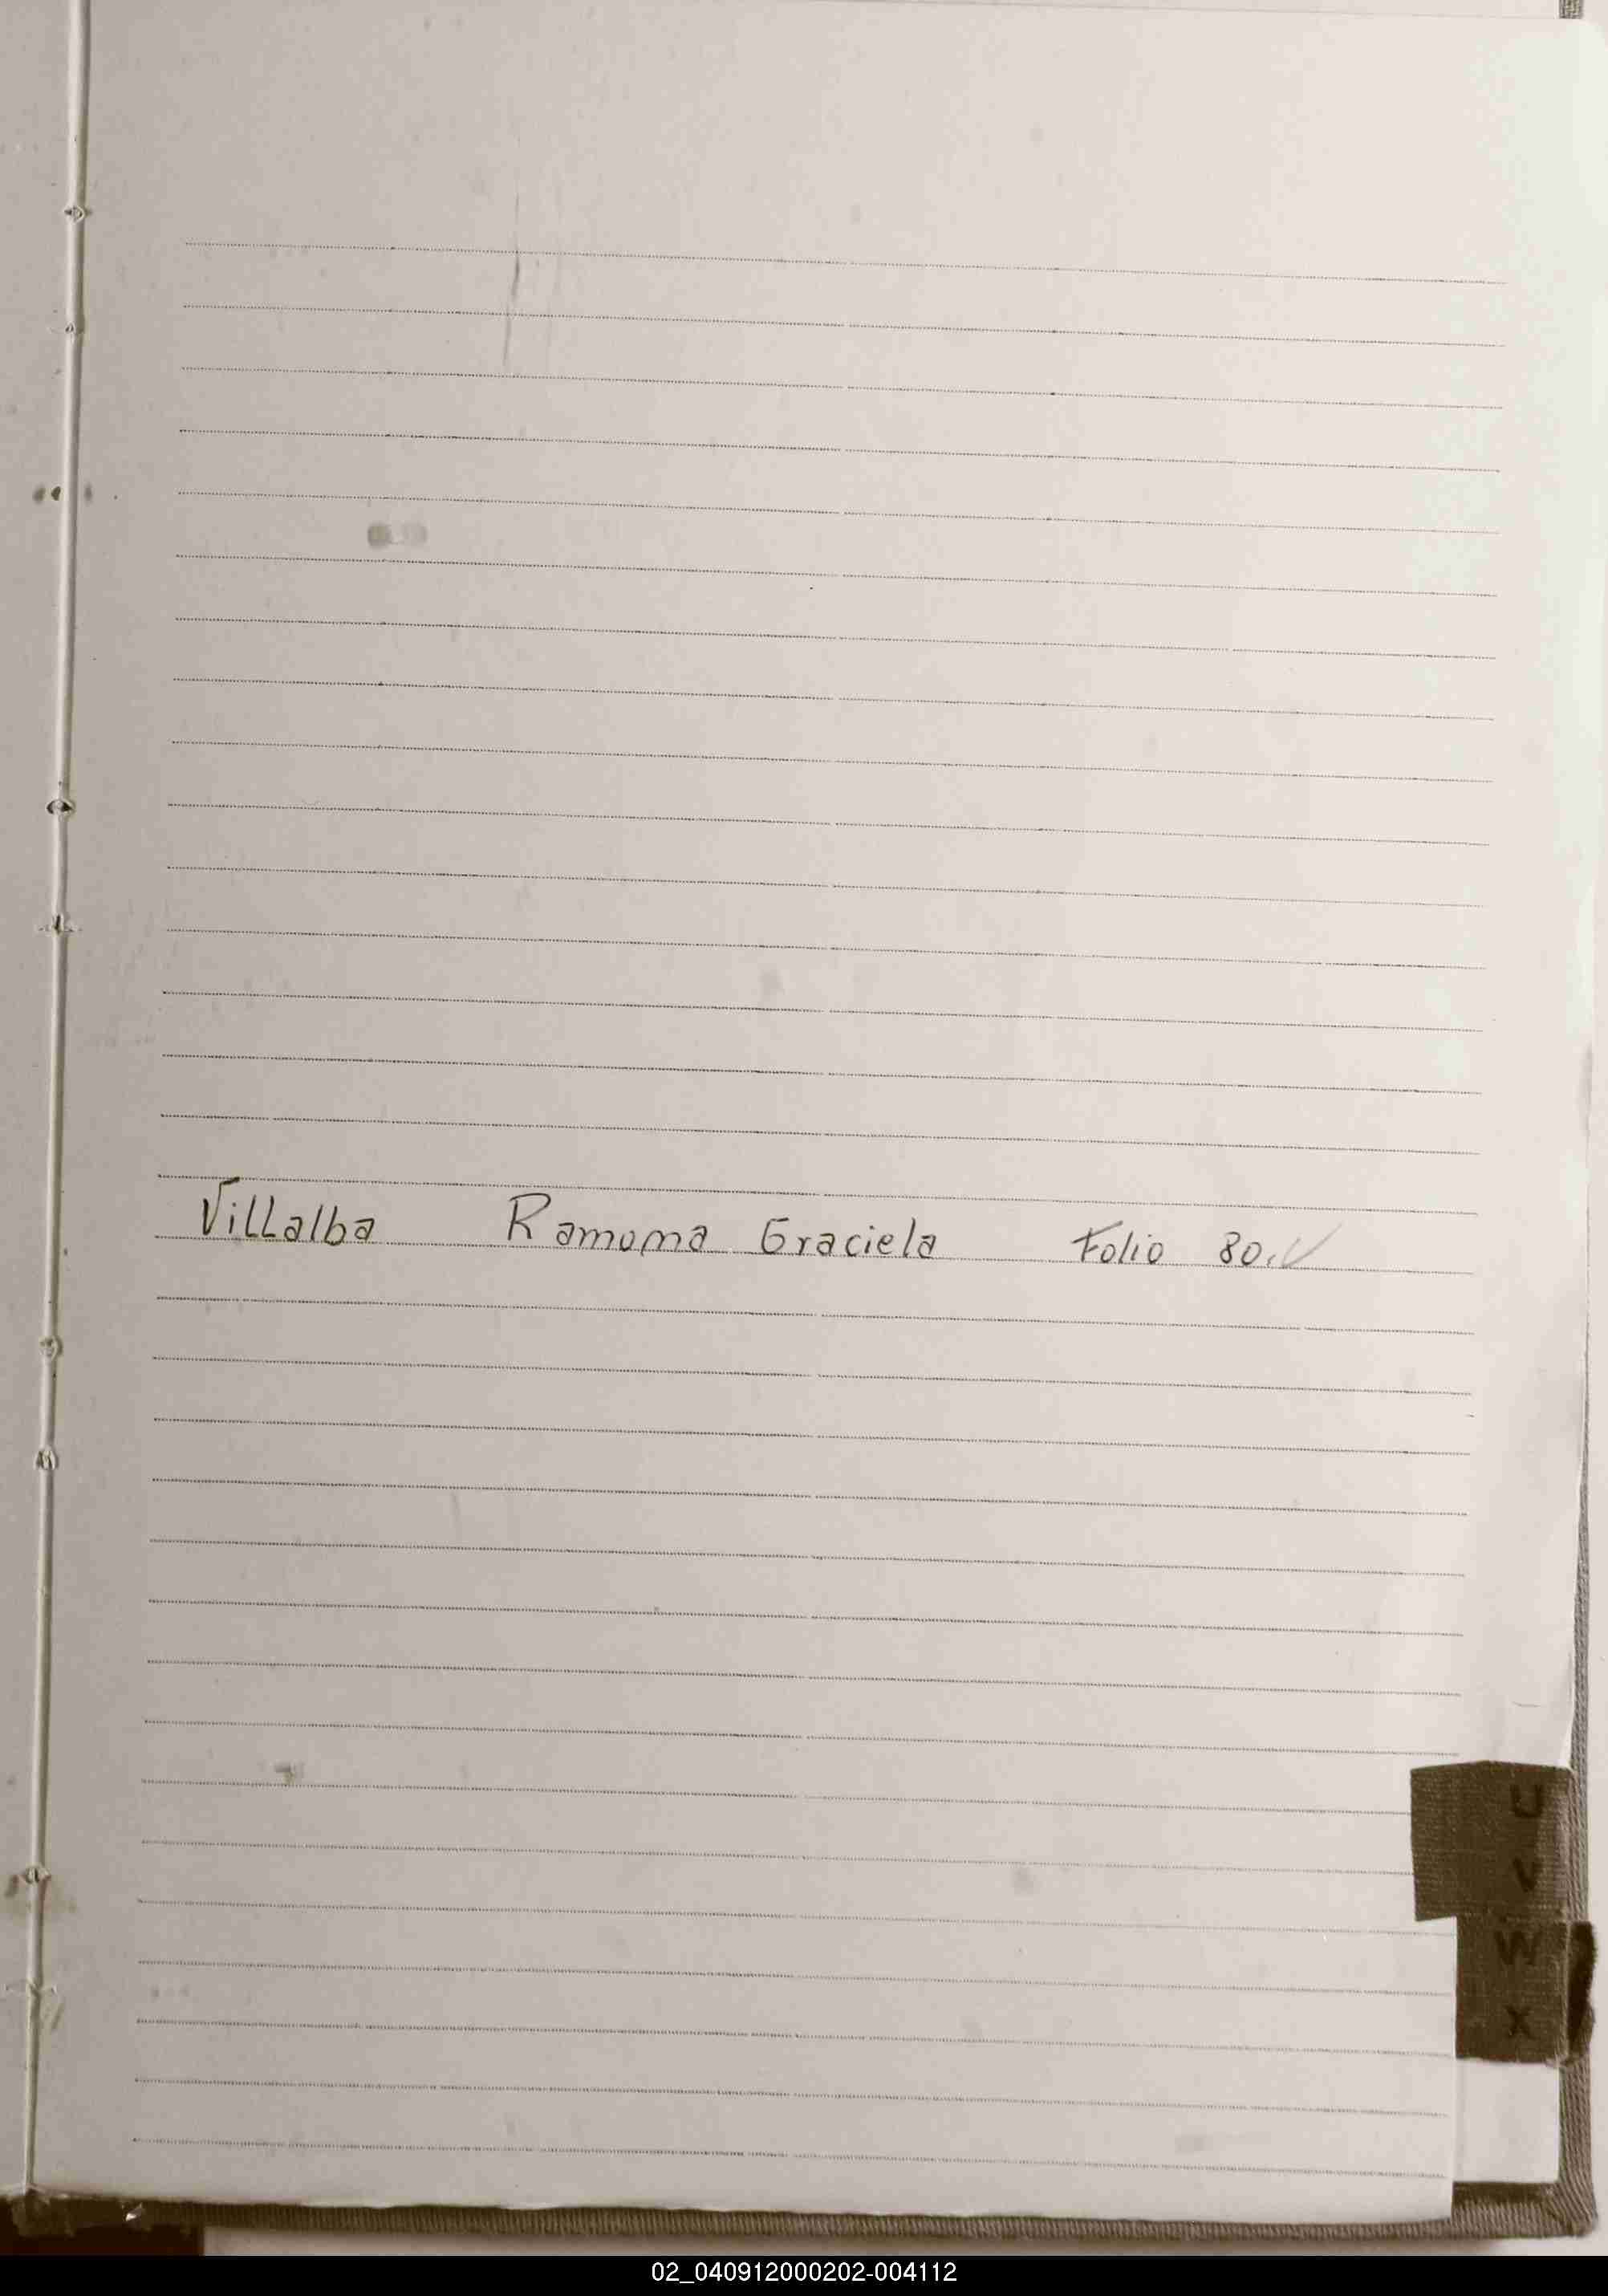 Villalba Ramona Graciela Folio 80. ✓
U
V
W
X
02_040912000202-004112